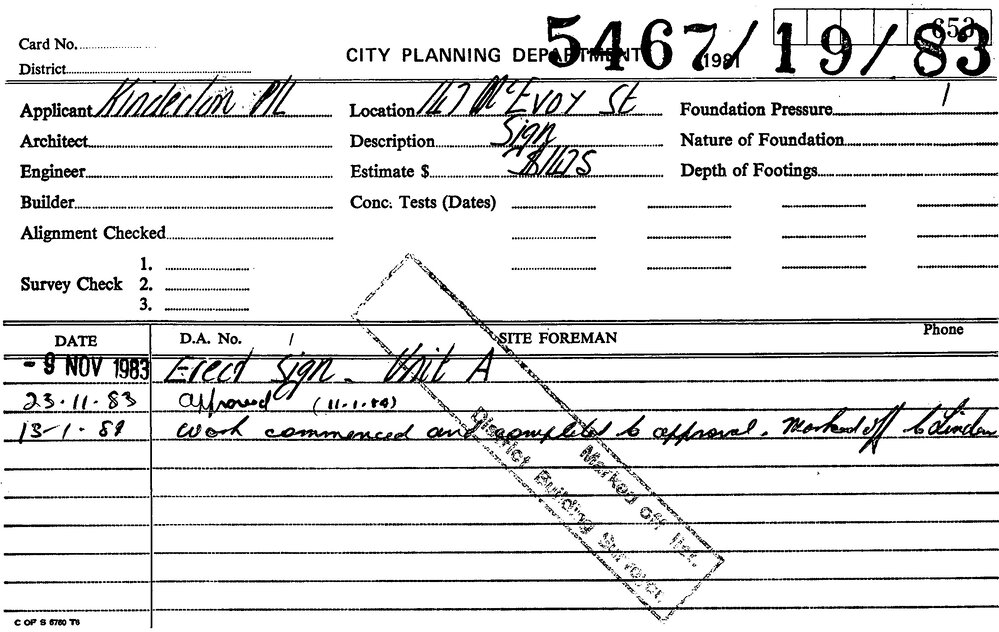 Card No.
District
CITY PLANNING DEPARTMENT
5467/19/83
1981
653
Applicant
Location 147 McEvoy St
Foundation Pressure
Architect
Description Sign
Nature of Foundation
Engineer
Estimate $ $1475
Depth of Footings
Builder
Conc. Tests (Dates)
Alignment Checked
Survey Check 1.
2.
3.
DATE D.A. No. SITE FOREMAN Phone
- 9 NOV 1983 Erect Sign - Unit A
23.11.83 approved (11.1.84)
13-1.84 work commenced and completed to approval. Marked off
Marked off list.
District Building Surveyor.
C OF S 6760 T6